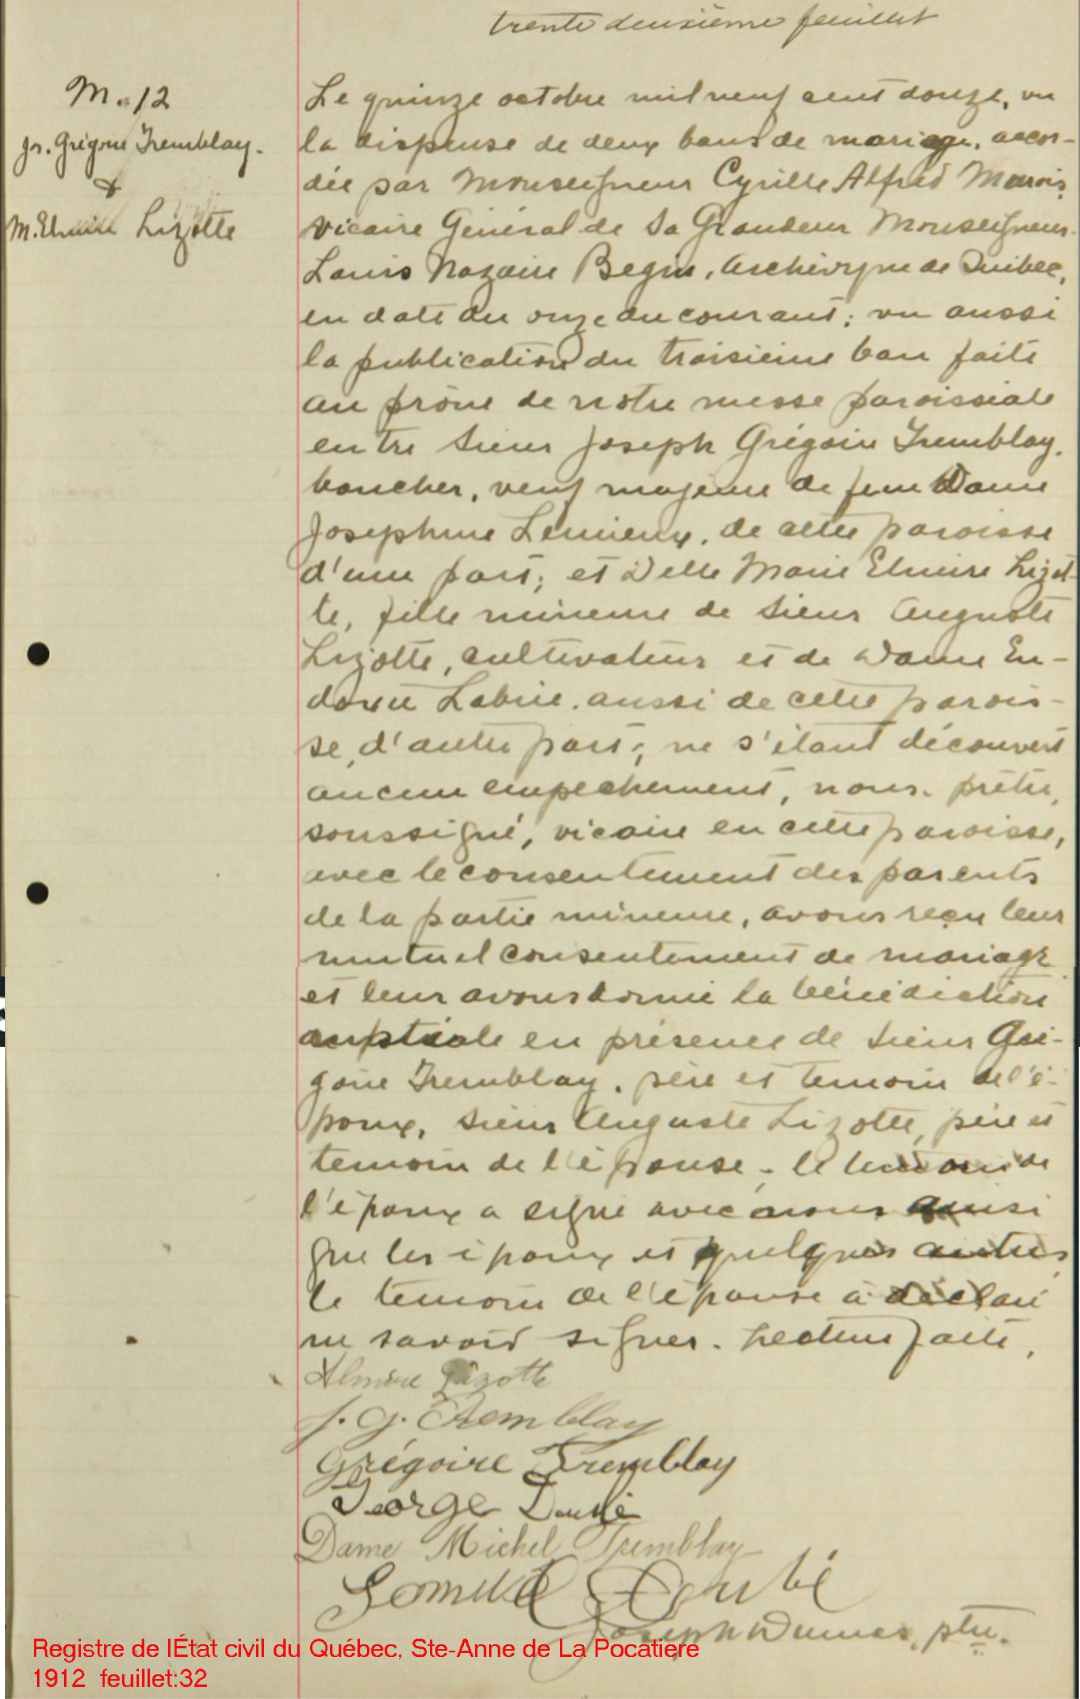 trente deuxième feuillet
M. 12
Js. Grégoire Tremblay.
&
M. Elmire Lizotte
Le quinze octobre mil neuf cent douze, vu
la dispense de deux bans de mariage, accor-
dée par Monseigneur Cyrille Alfred Marois,
vicaire Général de Sa Grandeur Monseigneur
Louis Nazaire Begin, Archevêque de Québec,
en date du onze du courant; vu aussi
la publication du troisième ban faite
au prône de notre messe paroissiale
entre Sieur Joseph Grégoire Tremblay,
boucher, veuf majeur de feue Dame
Josephine Lemieux, de cette paroisse
d'une part; et Delle Marie Elmire Lizot-
te, fille mineure de Sieur Auguste
Lizotte, cultivateur et de Dame Eu-
doxie Labrie, aussi de cette parois-
se, d'autre part; ne s'étant découvert
aucun empechement, nous, prêtre,
soussigné, vicaire en cette paroisse,
avec le consentement des parents
de la partie mineure, avons reçu leur
mutuel consentement de mariage
et leur avons donné la bénédiction
nuptiale en présence de Sieur Gré-
goire Tremblay, père et temoin de l'é-
poux, Sieur Auguste Lizotte, père et
temoin de l'épouse; le temoin de
l'époux a signé avec nous ainsi
que les époux et quelques autres,
le temoin de l'épouse a déclaré
ne savoir signer. Lecture faite,
Almire Lizotte
J. G. Tremblay
Grégoire Tremblay
George
Dame Michel Tremblay
Joseph Dumais, ptre.
Registre de lÉtat civil du Québec, Ste-Anne de La Pocatière
1912 feuillet:32